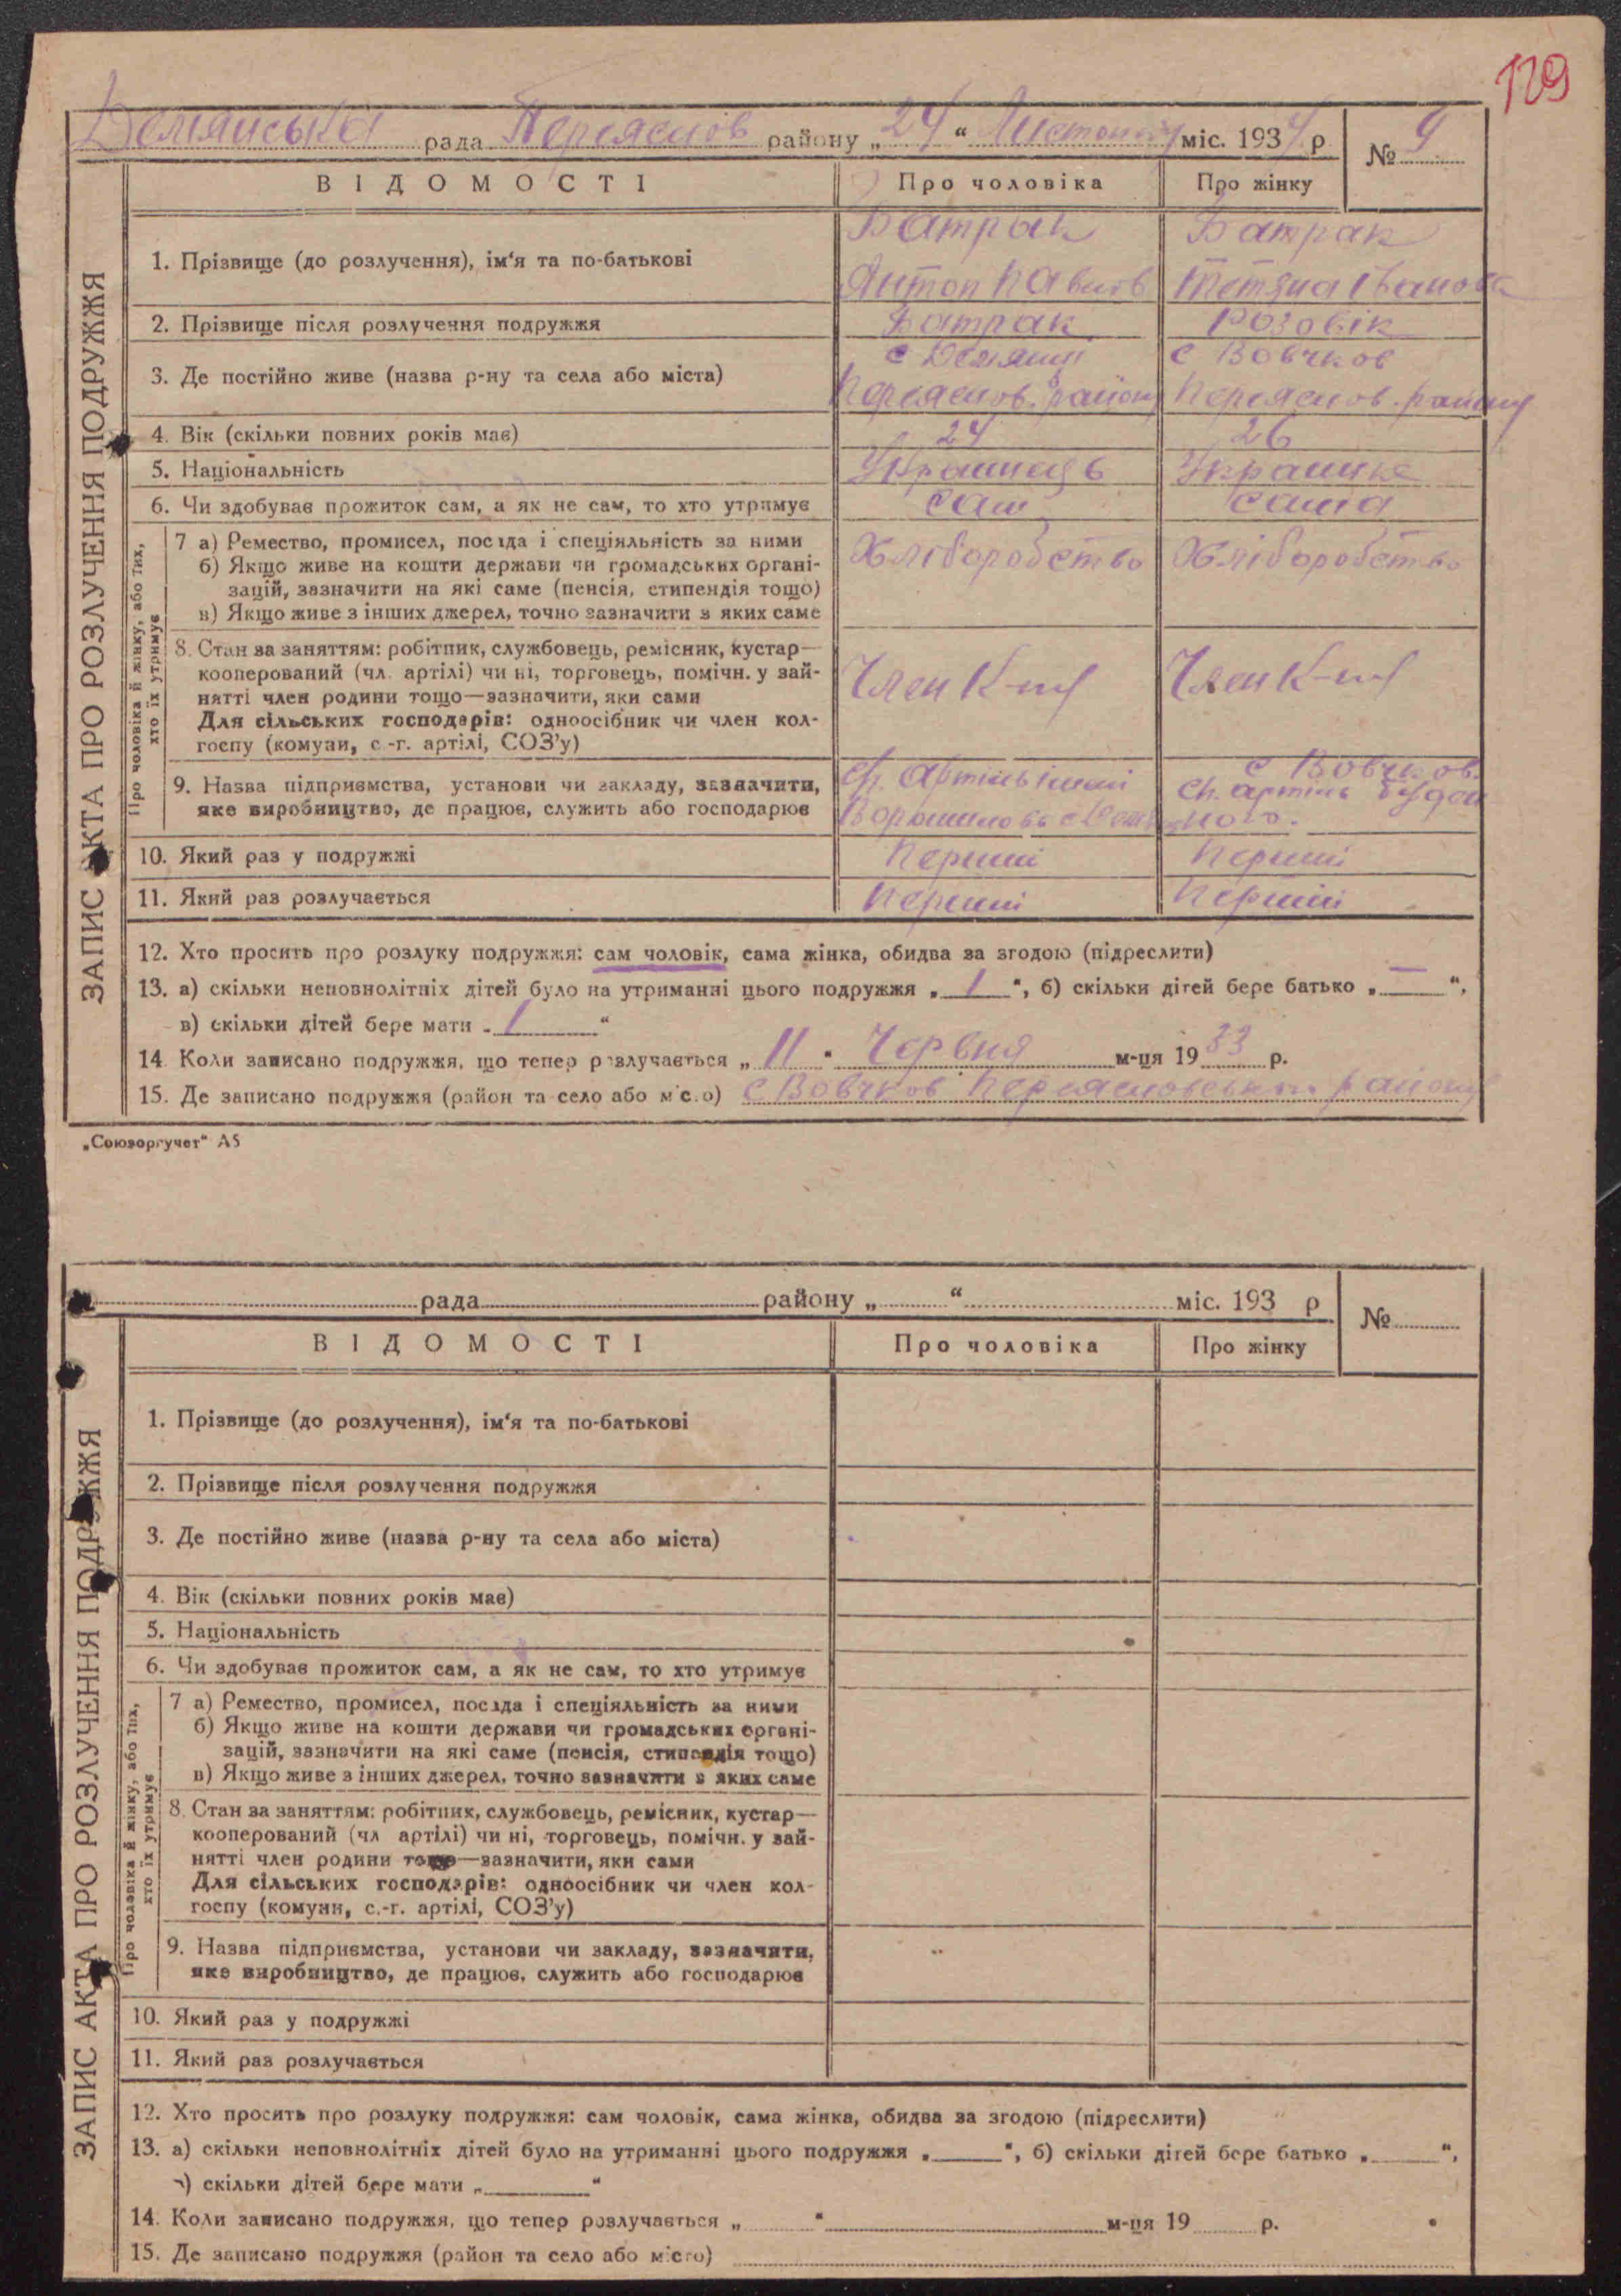 129
Демянська рада Переяслов району „ 24 “ Листопаду міс. 1934 р. № 9
ВІДОМОСТІ Про чоловіка Про жінку
ЗАПИС АКТА ПРО РОЗЛУЧЕННЯ ПОДРУЖЖЯ
1. Прізвище (до розлучення), ім‘я та по-батькові
Батрак Батрак
Антон Павлов Тетяна Іванова
2. Прізвище після розлучення подружжя Батрак Розовік
3. Де постійно живе (назва р-ну та села або міста)
с Демянці с Вовчков
Переяслов. район Переяслов. району
4. Вік (скільки повних років має) 24 26
5. Національність Українець Українка
6. Чи здобуває прожиток сам, а як не сам, то хто утримує сам сама
Про чоловіка й жінку, або тих,
хто їх утримує
7 а) Ремество, промисел, посада і спеціяльність за ними Хліборобство Хліборобство
б) Якщо живе на кошти держави чи громадських органі-
зацій, зазначити на які саме (пенсія, стипендія тощо)
в) Якщо живе з інших джерел, точно зазначити з яких саме
8. Стан за заняттям: робітник, службовець, ремісник, кустар—
кооперований (чл. артілі) чи ні, торговець, помічн. у зай- Член К-пу Член К-пу
нятті член родини тощо—зазначити, яки сами
Для сільських господарів: одноосібник чи член кол-
госпу (комуни, с.-г. артілі, СОЗ’у)
9. Назва підприємства, установи чи закладу, зазначити,
яке виробництво, де працює, служить або господарює
Артіль імені
Ворошилова
с Вовчков.
артіль Буден
ного.
10. Який раз у подружжі Перший Перший
11. Який раз розлучається Перший Перший
12. Хто просить про розлуку подружжя: сам чоловік, сама жінка, обидва за згодою (підреслити)
13. а) скільки неповнолітніх дітей було на утриманні цього подружжя „ 1 “, б) скільки дітей бере батько „ — “,
в) скільки дітей бере мати „ 1 “
14. Коли записано подружжя, що тепер розлучається „ 11 “ Червня м-ця 19 33 р.
15. Де записано подружжя (район та село або місто) с Вовчков Переясловськ. району
„Союзоргучет“ А5
рада району „ “ міс. 193 р №
ВІДОМОСТІ Про чоловіка Про жінку
ЗАПИС АКТА ПРО РОЗЛУЧЕННЯ ПОДРУЖЖЯ
1. Прізвище (до розлучення), ім‘я та по-батькові
2. Прізвище після розлучення подружжя
3. Де постійно живе (назва р-ну та села або міста)
4. Вік (скільки повних років має)
5. Національність
6. Чи здобуває прожиток сам, а як не сам, то хто утримує
Про чоловіка й жінку, або тих,
хто їх утримує
7 а) Ремество, промисел, посада і спеціяльність за ними
б) Якщо живе на кошти держави чи громадських органі-
зацій, зазначити на які саме (пенсія, стипендія тощо)
в) Якщо живе з інших джерел, точно зазначити з яких саме
8. Стан за заняттям: робітник, службовець, ремісник, кустар—
кооперований (чл артілі) чи ні, торговець, помічн. у зай-
нятті член родини тощо—зазначити, яки сами
Для сільських господарів: одноосібник чи член кол-
госпу (комуни, с.-г. артілі, СОЗ’у)
9. Назва підприємства, установи чи закладу, зазначити,
яке виробництво, де працює, служить або господарює
10. Який раз у подружжі
11. Який раз розлучається
12. Хто просить про розлуку подружжя: сам чоловік, сама жінка, обидва за згодою (підреслити)
13. а) скільки неповнолітніх дітей було на утриманні цього подружжя „ “, б) скільки дітей бере батько „ “,
в) скільки дітей бере мати „ “
14. Коли записано подружжя, що тепер розлучається „ “ м-ця 19 р.
15. Де записано подружжя (район та село або місто)